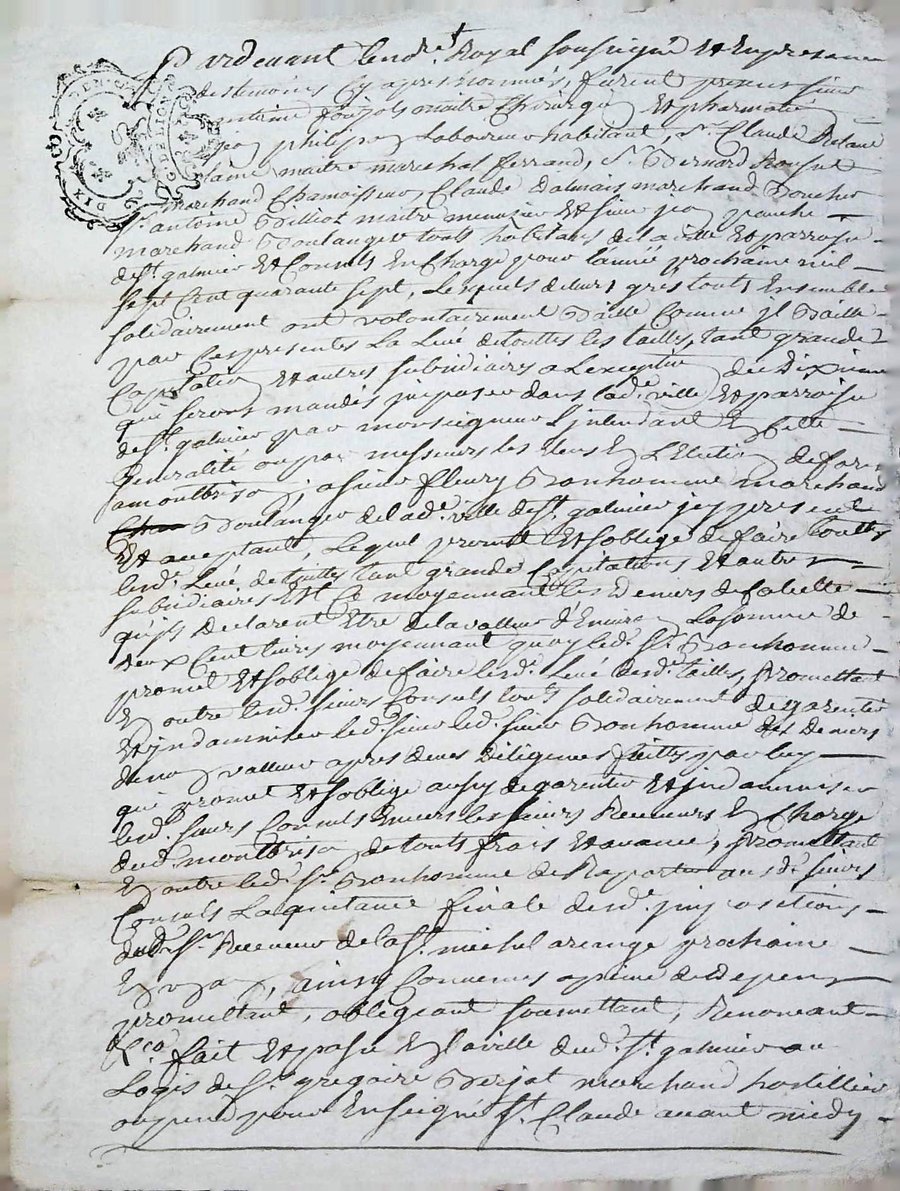 Pardevant le nore. Royal soussigné Et En presence
des témoins Cy apres nommés, furent presents sieur
antoine maitre Chirurgien Et pharmatien
philipe Laboureur habitant, Sr. Claude
ainé maitre marechal ferrand, Sr. Bernard
marchand Chamoisseur, Claude Dalmais marchand Boucher
Sr. antoine Billiot maitre menuisier Et sieur jean
marchand Boulanger touts habitants de la ville Et parroisse
de St. galmier Et Consuls En Charge pour l'année prochaine mil
sept Cent quarante sept, Lesquels de leurs grés touts Ensemble
solidairement ont volontairement Baillé Comme jl Baille
par Ces presentes La Levé de touttes les tailles, tant grande
Capitation Et autres subsidiaires a L'exception du Dixieme
qui seront mandés jmposer dans lade. ville Et parroisse
de St. galmier par monseigneur L'jntendant En Cette
Generalité ou par messieurs les Eleus En L'Election de forest
a montbrison, a sieur fleury Bonhomme marchand
Boulanger de lade. ville de St. galmier jcy present
Et acceptant, Lequel promet Et s'oblige de faire touttes
lesd. Levé de tailles tant grande Capitations Et autres
subsidiaires Et Ce moyennant les Deniers de Collette
qu'ils Declarent Etre de la valleur d'Environ La somme de
deux Cent livres moyennant quoy led. Sr. Bonhomme
promet Et s'oblige de faire lesd. Levé desd. tailles, promettant
En outre lesd. sieurs Consuls touts solidairement de garentir
Et jndamniser led. sieur led. sieur Bonhomme des Deniers
de non valleur apres dues Diligences faittes par luy
qui promet Et s'oblige aussy de garentir Et jndamniser
lesd. sieurs Consuls Envers les sieurs Receveurs En Charge
dud. montbrison de touts frais Et avance, promettant
En outre led. Sr. Bonhomme de Raporter ausd. sieurs
Consuls La quittance finale desd. jmpositions
dud. Sr. Receveur de la St. michel arcange prochaine
En un an, ainsy Convenus a peine de Depens
promettant, obligeant soumettant, Renonceant
&ca fait Et passé En la ville dud. St. galmier au
Logis de Sr. gregoire Verjat marchand hostillier
ou pend pour Enseigne St. Claude avant midy